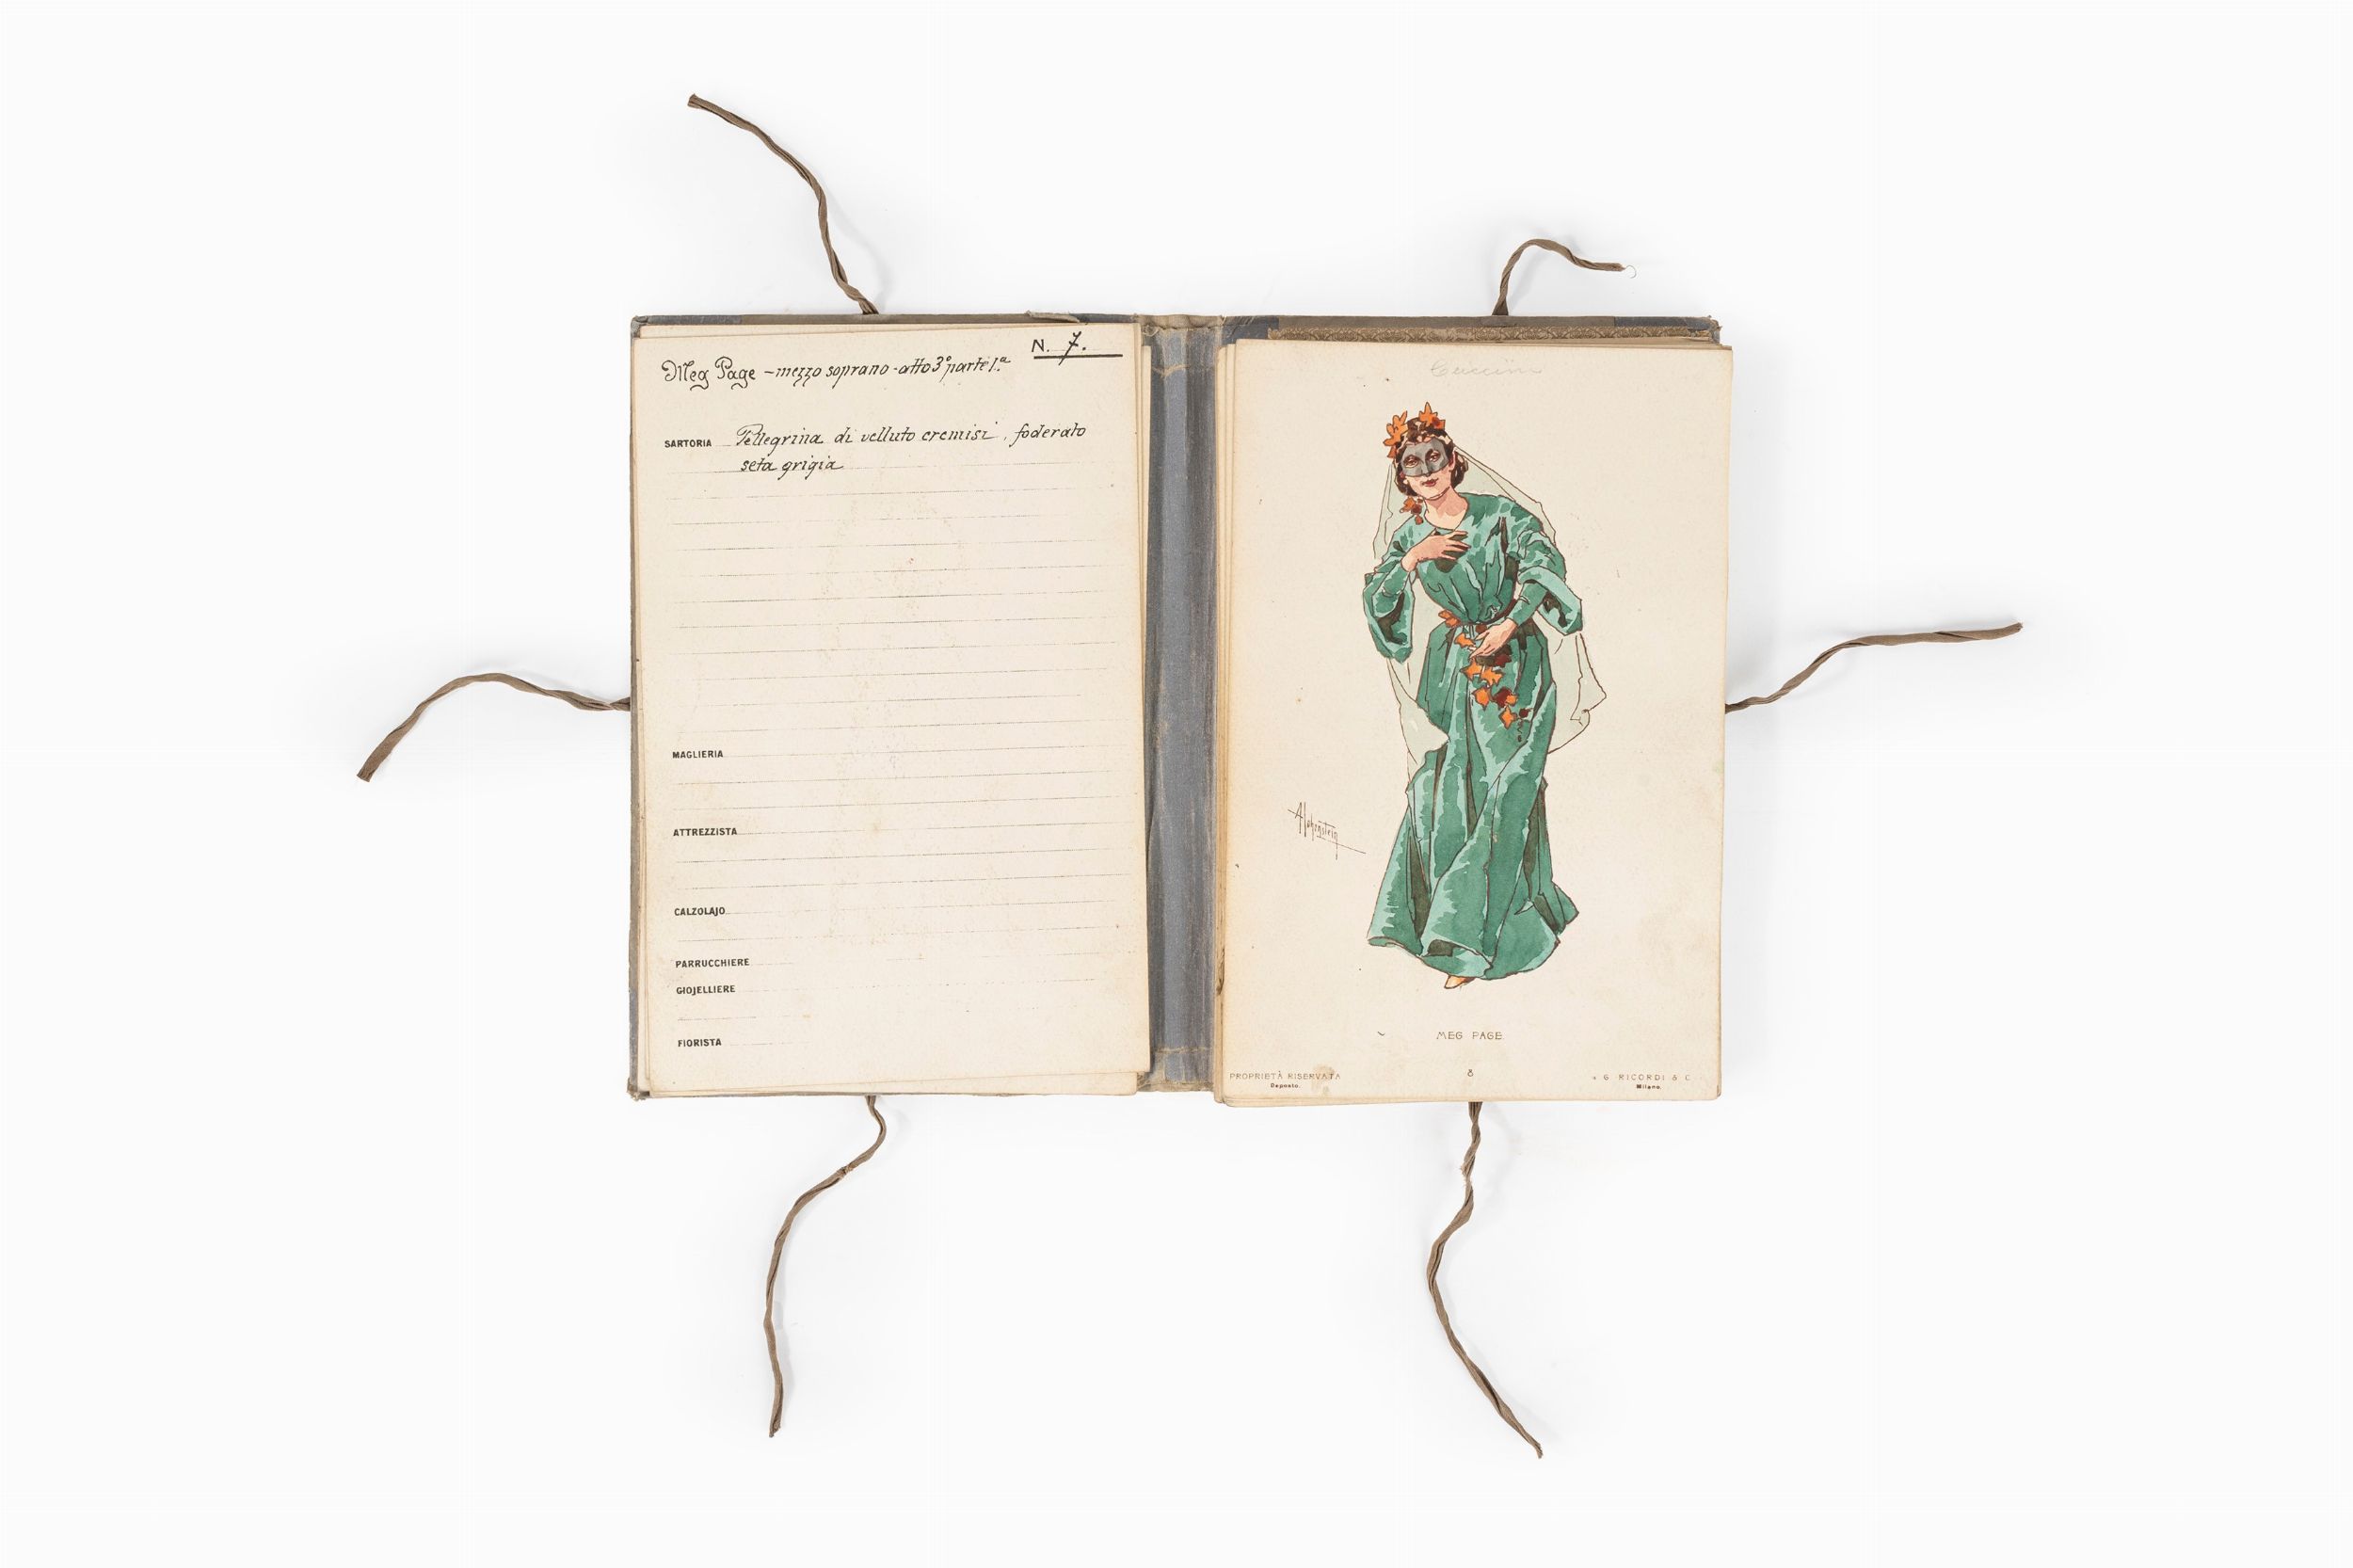 N. 7.
Meg Page - mezzo soprano - atto 3° parte 1.ª
SARTORIA Pellegrina di velluto cremisi, foderato
seta grigia
MAGLIERIA
ATTREZZISTA
CALZOLAJO
PARRUCCHIERE
GIOJELLIERE
FIORISTA
AHohenstein
MEG PAGE
PROPRIETÀ RISERVATA
Deposto.
8
G. RICORDI & C.
Milano.